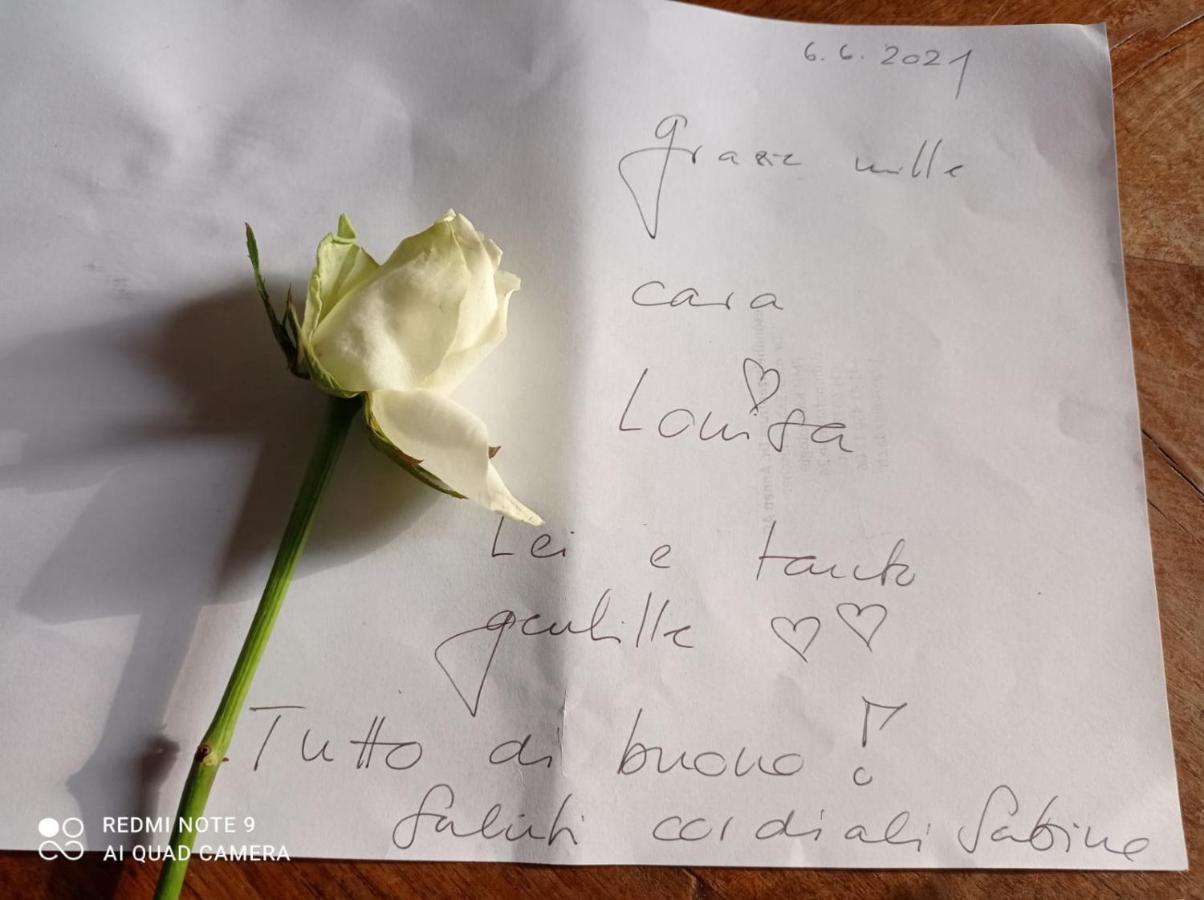 6.6.2021
grazie mille
cara
Louisa
Lei e tanto
gentille
Tutto di buono!
Saluti cordiali Sabine
REDMI NOTE 9
AI QUAD CAMERA